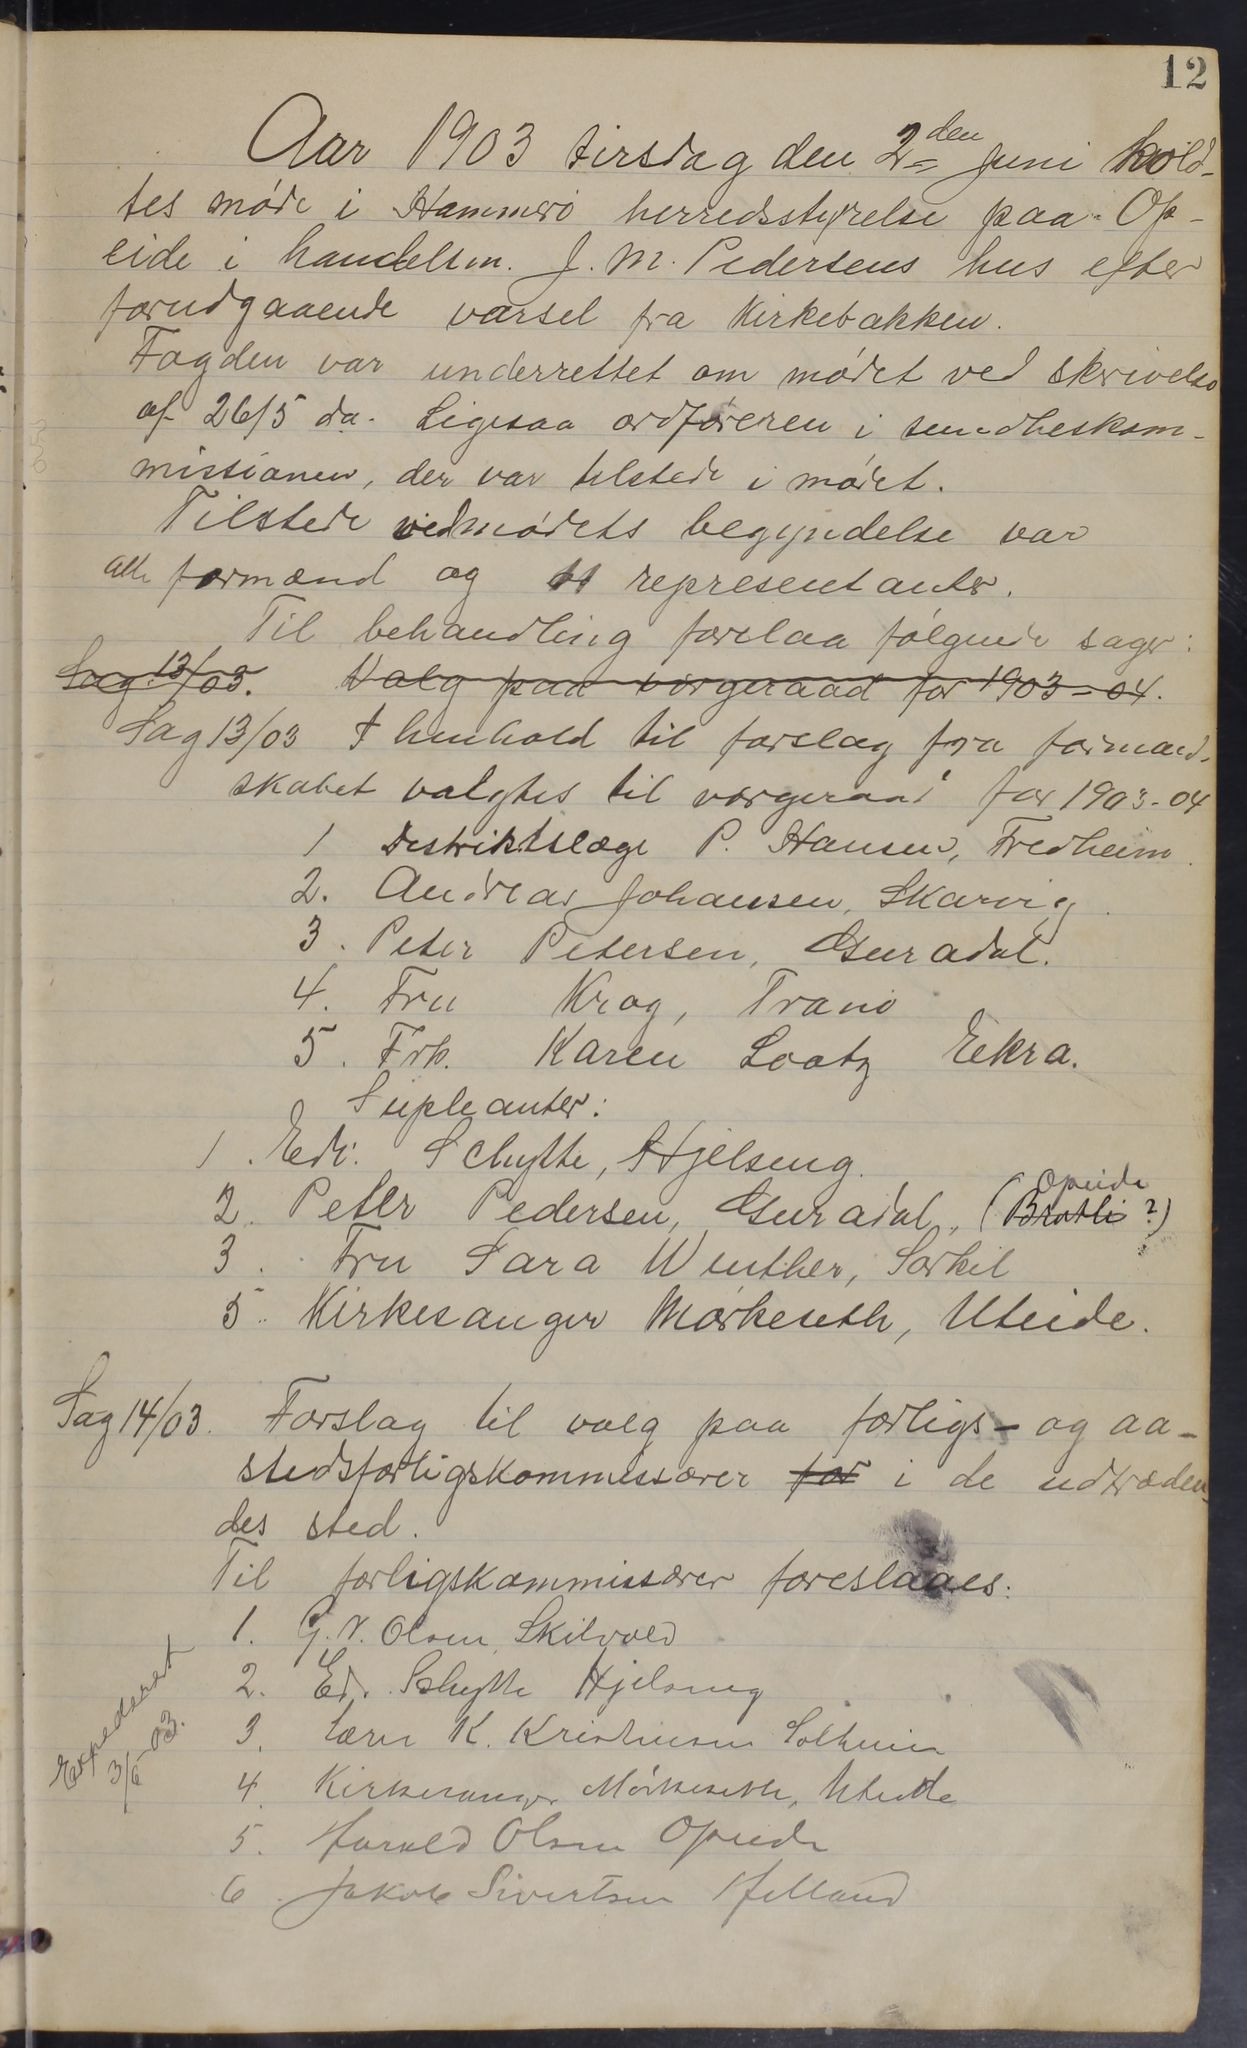 12
Aar 1903 tirsdag den 2den Juni hold-
tes møde i Hammerø herredsstyrelse paa Op-
eide i handelsm. J. M. Pedersens hus efter
forudgaaende varsel fra Kirkebakken.
Fogden var underrettet om mødet ved skrivelse
af 26/5 da. Ligesaa ordføreren i sundheskom-
missionen, der var tilstede i mødet.
Tilstede ved mødets begyndelse var
alle formænd og 11 representanter.
Til behandling forelaa følgende sager:
Sag 13/03. Valg paa vergeraad for 1903-04.
Sag 13/03 I henhold til forslag fra formand-
skabet valgtes til vergeraad for 1903-04
1 Distriktslæge P. Hansen, Fredheim.
2. Andreas Johansen, Skarvig.
3. Peter Petersen, Buradal.
4. Fru Krog, Tranø
5. Frk. Karen Lootz Eekra.
Supleanter:
1. Edv. Schytte, Hjelseng.
2. Peter Pedersen, Buradal, (Bratli ?) Opeide
3. Fru Sara Winther, Sørkil
5. Kirkesanger Mørkeseth, Uteide.
Sag 14/03. Forslag til valg paa forligs- og aa-
stedsforligskommissærer for i de udtræden-
des sted.
Til forligskommissærer foreslaaes:
1. G. N. Olsen, Skilvold
2. Ed. Schytte Hjelseng
3. Lærer K. Kristensen Solheim
4. Kirkesanger Mørkeseth, Uteide
5. Harald Olsen Opeide
6. Jakob Sivertsen Helland
Expederet
3/6-03.